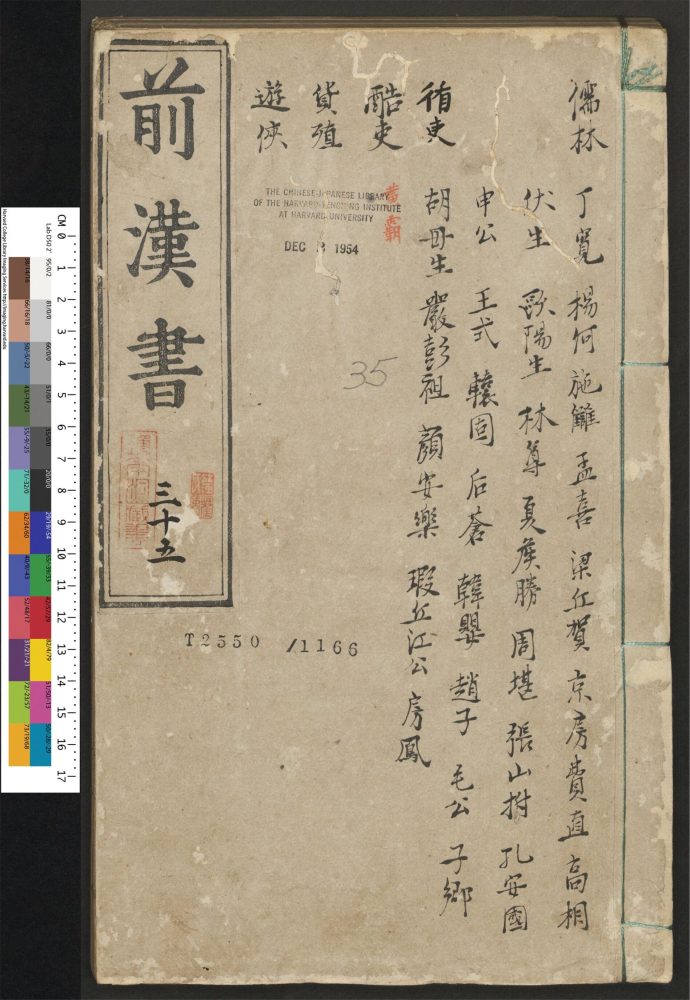 儒林 丁寬 楊何 施讎 孟喜 梁丘賀 京房 費直 高相
伏生 歐陽生 林尊 夏侯勝 周堪 張山拊 孔安國
申公 王式 轅固 后蒼 韓嬰 趙子 毛公 子鄉
胡毋生 嚴彭祖 顏安樂 瑕丘江公 房鳳
循吏
黃霸
酷吏
貨殖
遊俠
前漢書
三十五
THE CHINESE-JAPANESE LIBRARY
OF THE HARVARD-YENCHING INSTITUTE
AT HARVARD UNIVERSITY
DEC 1954
35
T2550 /1166
CM 0 1 2 3 4 5 6 7 8 9 10 11 12 13 14 15 16 17